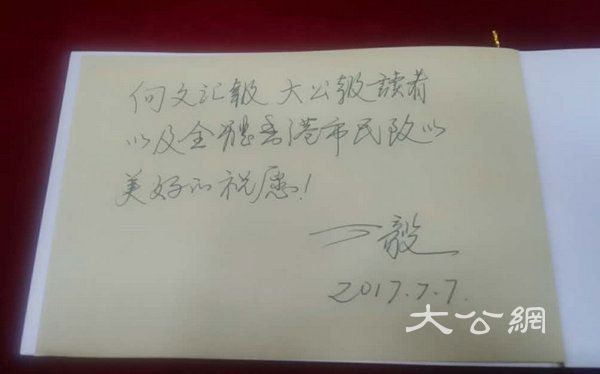 向文汇報 大公報讀者
以及全體香港市民致以
美好的祝愿!
丁毅
2017.7.7.
大公網